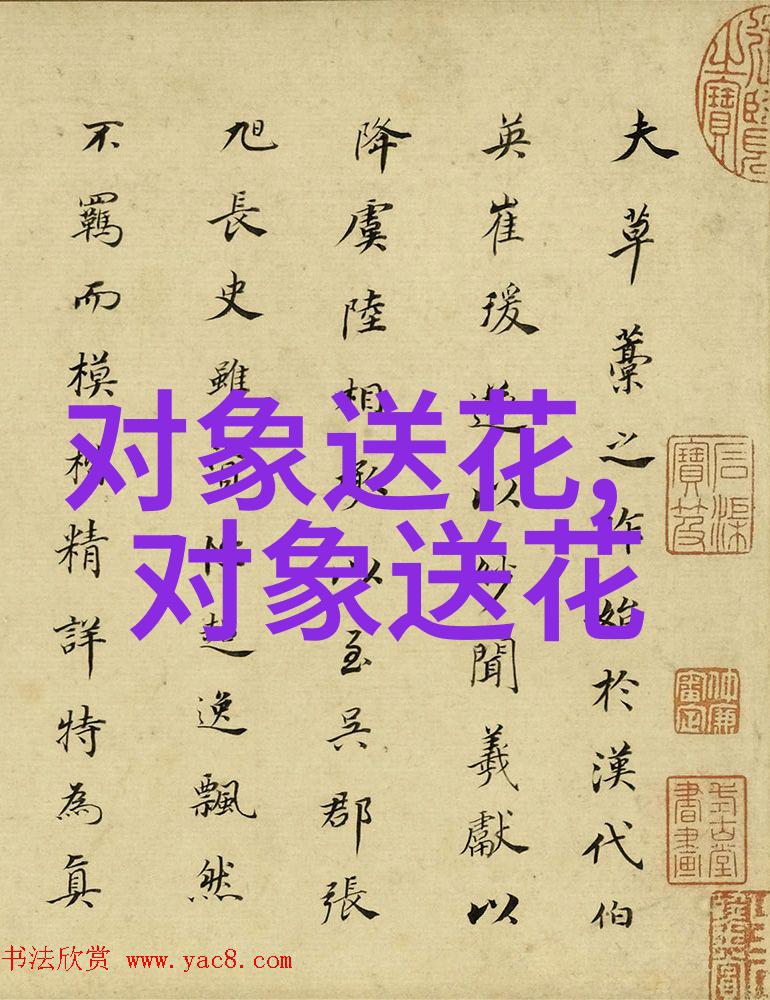 夫草藁之作始於漢代伯
英崔瑗以妙聞羲獻以
降虞陸相承以至吳郡張
旭長史雖超逸飄然
不羈而模楷精詳特為真
对象送花,
对象送花
书法欣赏 www.yac8.com